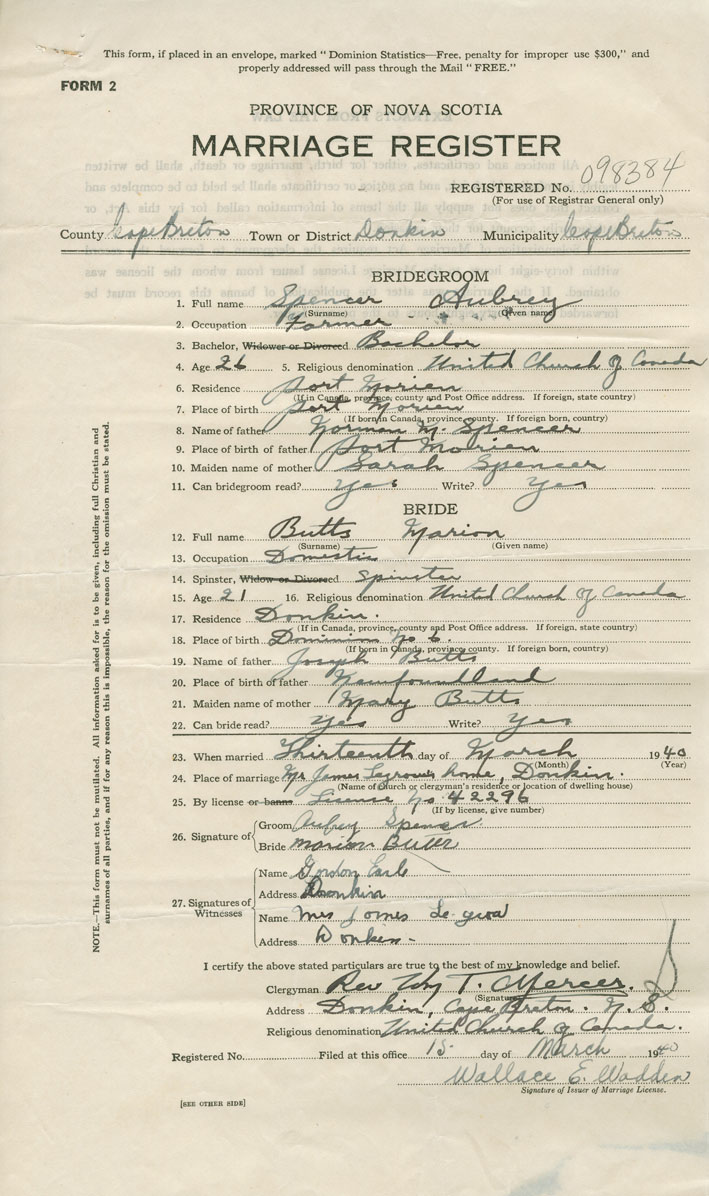 This form, if placed in an envelope, marked "Dominion Statistics—Free, penalty for improper use $300," and
properly addressed will pass through the Mail "FREE."
FORM 2
PROVINCE OF NOVA SCOTIA
MARRIAGE REGISTER
REGISTERED No. 098384
(For use of Registrar General only)
County Cape Breton Town or District Donkin Municipality Cape Breton
BRIDEGROOM
1. Full name Spencer Aubrey
(Surname) (Given name)
2. Occupation Farmer
3. Bachelor, Widower or Divorced Bachelor
4. Age 26 5. Religious denomination United Church of Canada
6. Residence Port Morien
(If in Canada, province, county and Post Office address. If foreign, state country)
7. Place of birth Port Morien
(If born in Canada, province county. If foreign born, country)
8. Name of father Norman M. Spencer
9. Place of birth of father Port Morien
10. Maiden name of mother Sarah Spencer
11. Can bridegroom read? Yes Write? Yes
BRIDE
12. Full name Butts Marion
(Surname) (Given name)
13. Occupation Domestic
14. Spinster, Widow or Divorced Spinster
15. Age 21 16. Religious denomination United Church of Canada
17. Residence Donkin.
(If in Canada, province, county and Post Office address. If foreign, state country)
18. Place of birth Dominion No 6.
(If born in Canada, province county. If foreign born, country)
19. Name of father Joseph Butts
20. Place of birth of father Newfoundland
21. Maiden name of mother Mary Butts
22. Can bride read? Yes Write? Yes
23. When married Thirteenth day of March 1940
(Month) (Year)
24. Place of marriage Mr James Legrow's home, Donkin.
(Name of Church or clergyman's residence or location of dwelling house)
25. By license or banns License No 42296
(If by license, give number)
26. Signature of Groom Aubrey Spencer
Bride Marion Butts
27. Signatures of Witnesses Name Gordon Earle
Address Donkin
Name Mrs James Le grow
Address Donkin-
I certify the above stated particulars are true to the best of my knowledge and belief.
Clergyman Rev Wm T. Mercer.
(Signature)
Address Donkin, Cape Breton. N. S.
Religious denomination United Church of Canada.
Registered No. Filed at this office 15 day of March 1940
Wallace E. Wadden
Signature of Issuer of Marriage License.
[SEE OTHER SIDE]
NOTE.—This form must not be mutilated. All information asked for is to be given, including full Christian and
surnames of all parties, and if for any reason this is impossible, the reason for the omission must be stated.